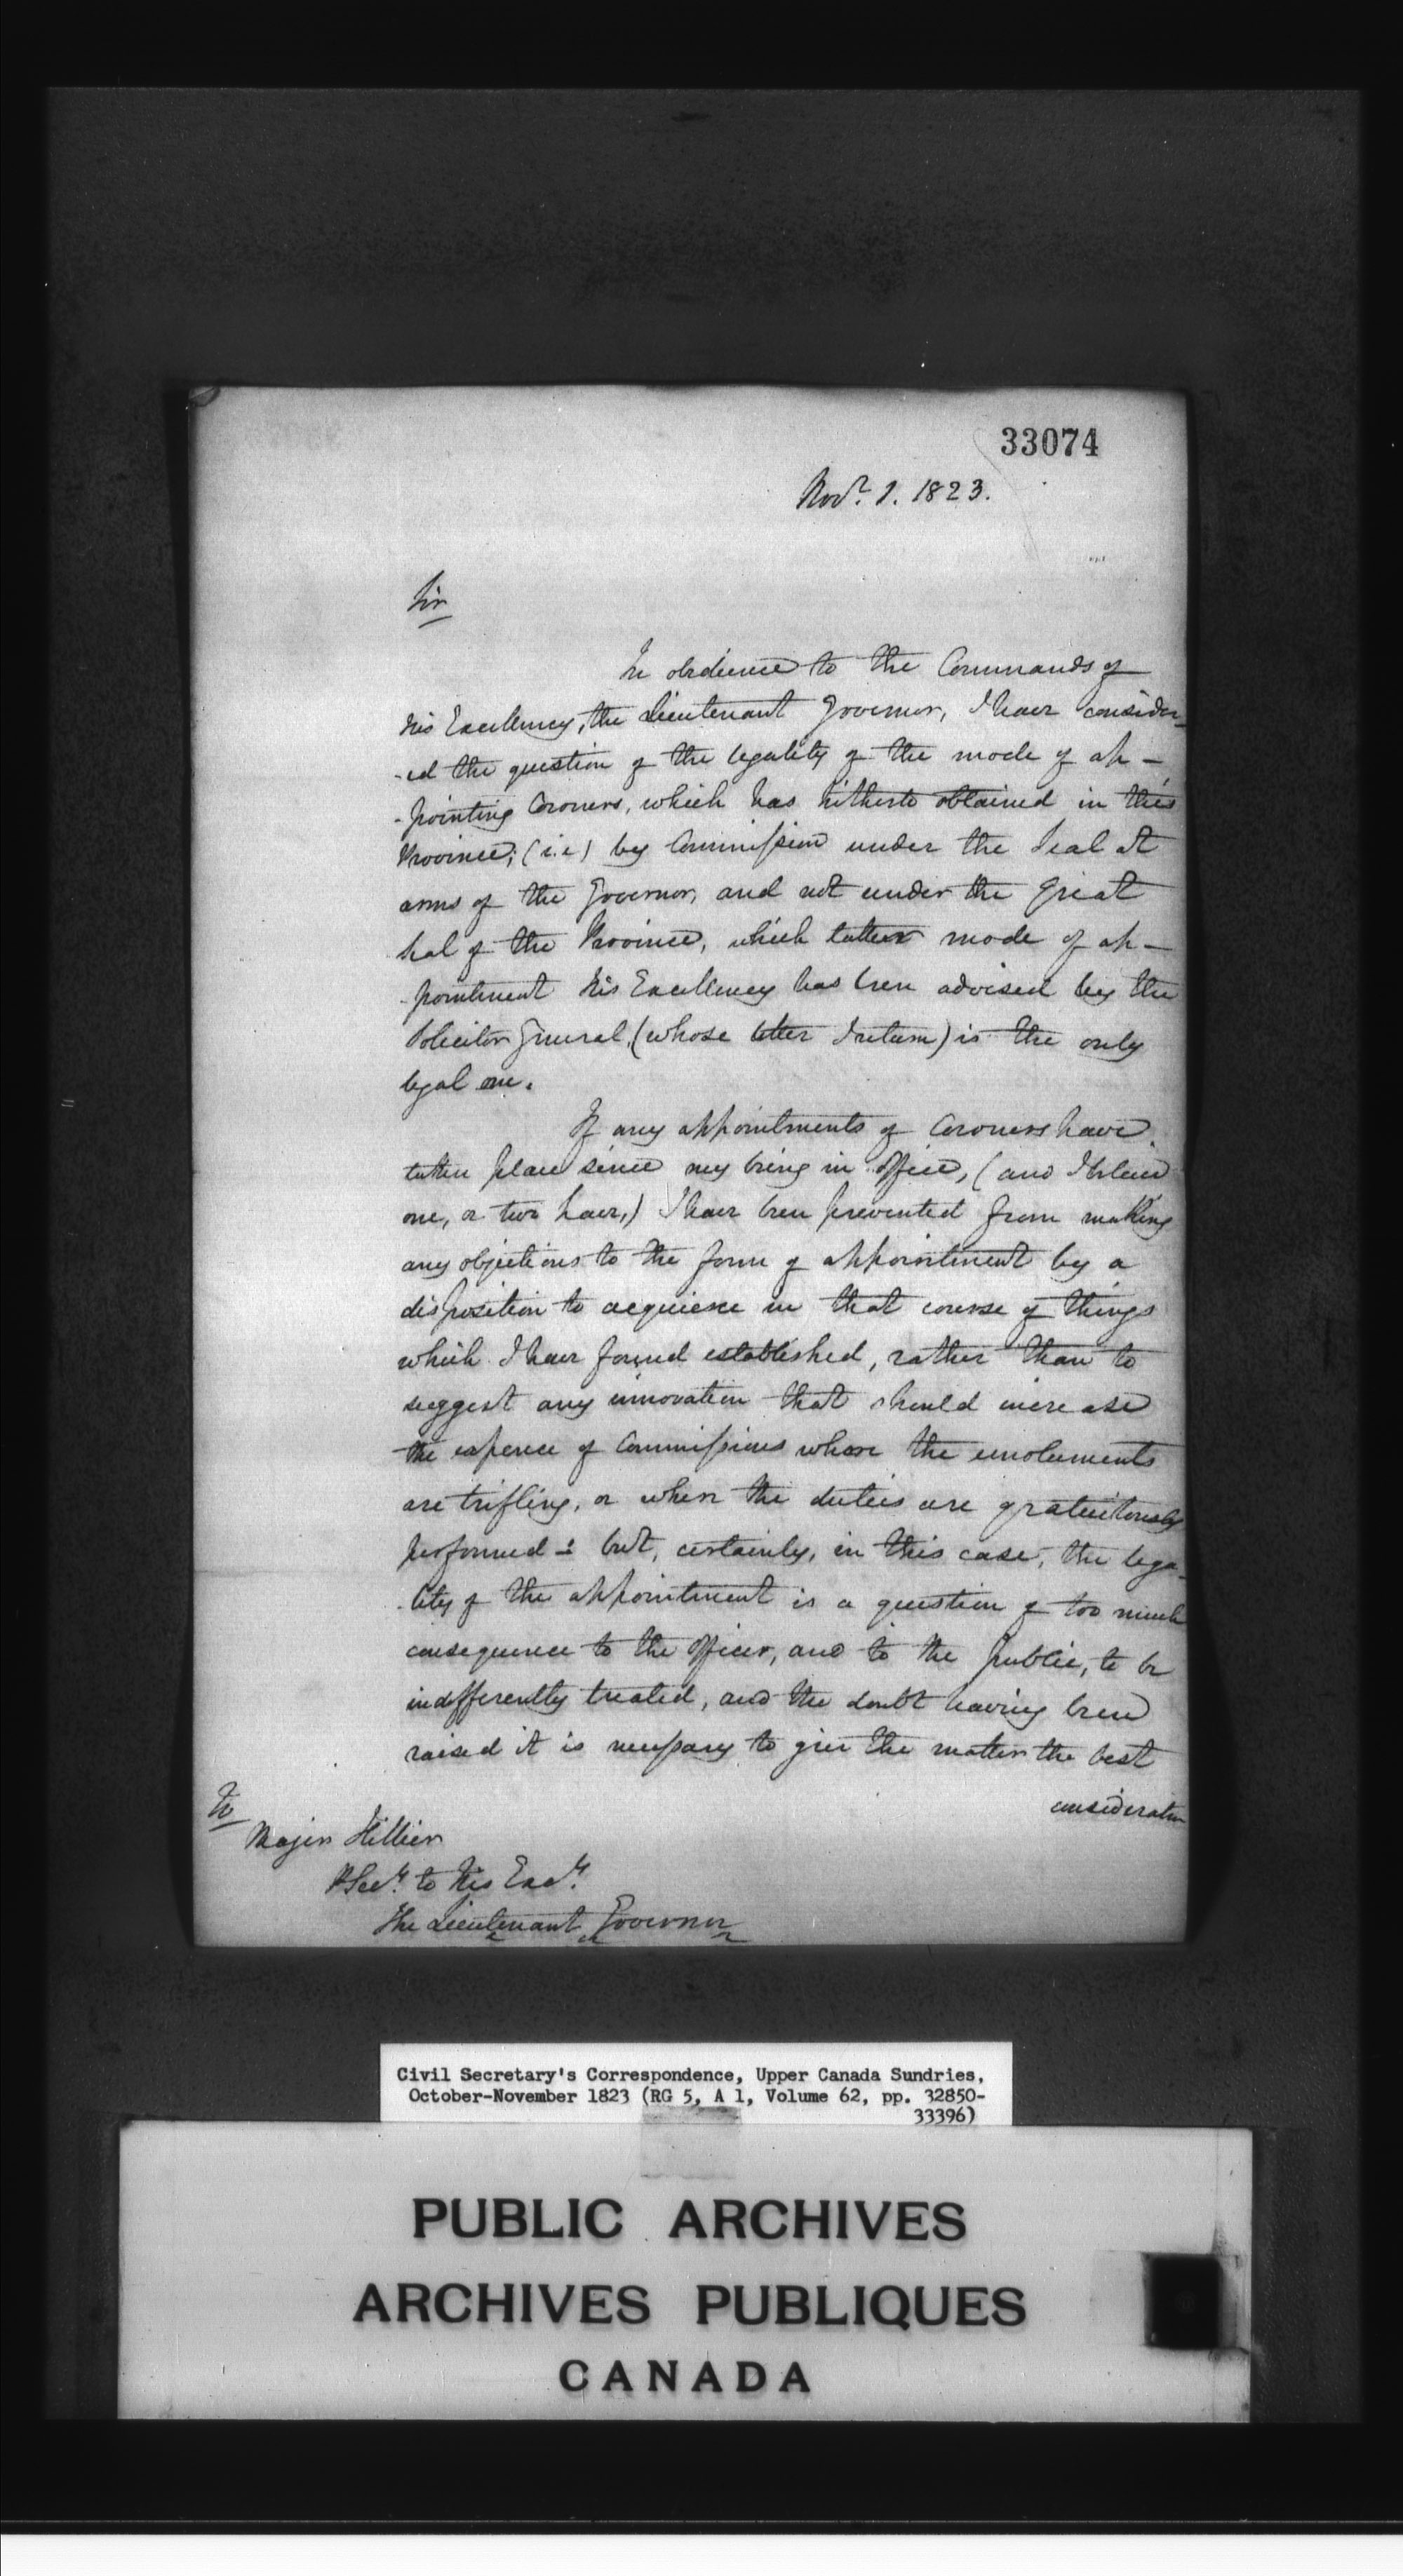 33074
Novr. 1. 1823.
Sir
In obedience to the Commands of
His Excellency, the Lieutenant Governor, I have consider-
-ed the question of the legality of the mode of ap-
-pointing Coroners, which has hitherto obtained in this
Province; (i.e) by Commission under the Seal at
arms of the Governor, and not under the Great
Seal of the Province, which latter mode of ap-
-pointment His Excellency has been advised by the
Solicitor General, (whose letter I return) is the only
legal one.
If any appointments of Coroners have
taken place since my being in office, (and I believe
one, or two have,) I have been prevented from making
any objections to the form of appointment by a
disposition to acquiesce in that course of things
which I have found established, rather than to
suggest any innovation that should increase
the expence of Commissions where the emoluments
are trifling, or where the duties are gratuitously
performed - but, certainly, in this case, the lega-
-lity of the appointment is a question of too much
consequence to the officer, and to the public, to be
indifferently treated, and the doubt having been
raised it is necessary to give the matter the best
consideration
To
Major Hillier
P Secy. to His Excy.
The Lieutenant Governor
Civil Secretary's Correspondence, Upper Canada Sundries,
October-November 1823 (RG 5, A 1, Volume 62, pp. 32850-
33396)
PUBLIC ARCHIVES
ARCHIVES PUBLIQUES
CANADA